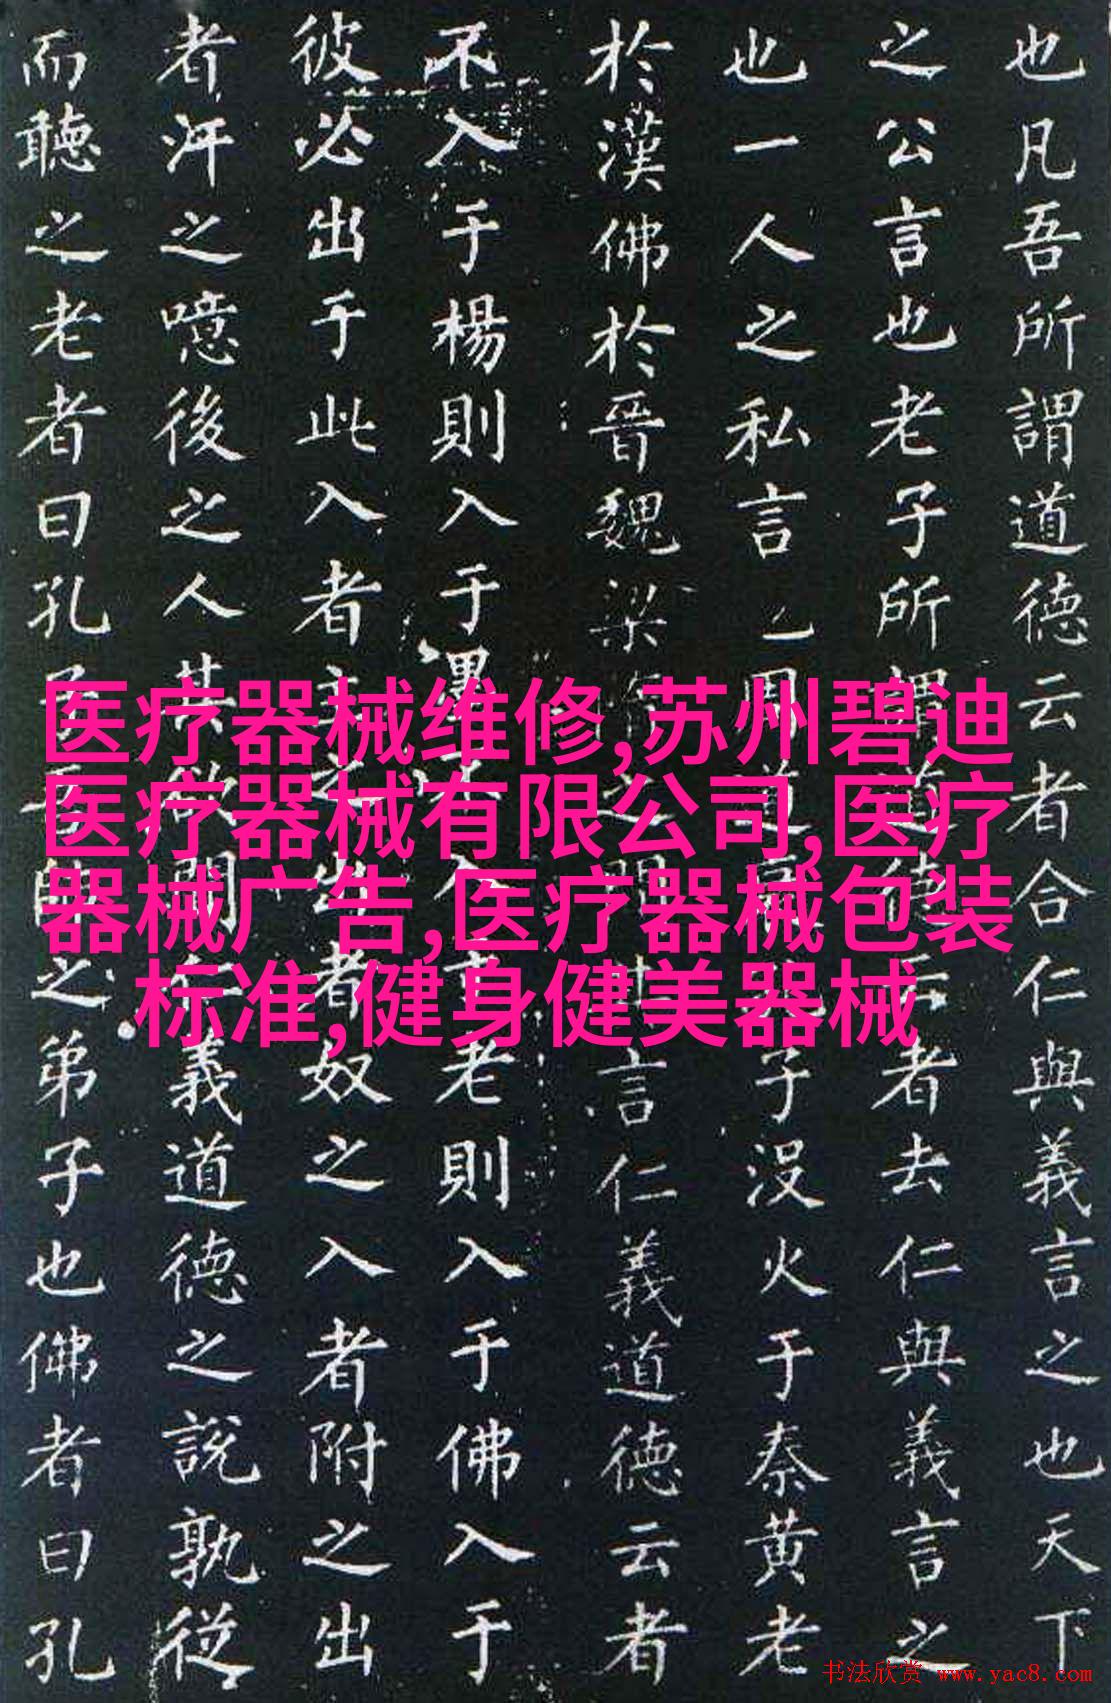 也凡吾所謂道德云者合仁與義言之也天下
之公言也老子所謂道德云者去仁與義言之
也一人之私言周道子沒火于秦黄老
於漢佛於晉魏梁之間言仁義道德云者
不入于楊則入于墨入老則入于佛入于
彼必出于此入者主之出者奴之入者附之出
者汙之噫後之人其欲聞仁義道德之説孰從
而聽之老者曰孔子師之弟子也佛者曰孔
医疗器械维修,苏州碧迪
医疗器械有限公司,医疗
器械广告,医疗器械包装
标准,健身健美器械
书法欣赏 www.yac8.com